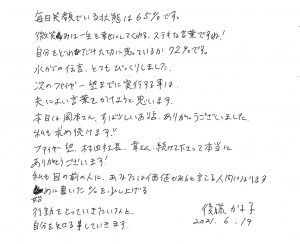 毎日笑顔でいる状態は65%です。
微笑みは一生を幸せにしてくれる、ステキな言葉ですね!
自分をどれだけ大切に思っているか 72%です。
水からの伝言、とてもびっくりしました。
次のファイザー望までに実行する事は、
夫によい言葉をかけようと思います。
本日は岡本さん、すばらしいお話、ありがとうございました。
私も求め続けます!!
ファイザー望、村田社長、皆さん、続けて下さって本当に
ありがとうございます!
私も目の前の人に、あなたは価値があると言える人間になります
始めに書いた%を少し上げる
行動をとっていきたい
自分を知る事していきます。
後藤かよ子
2021.6.19